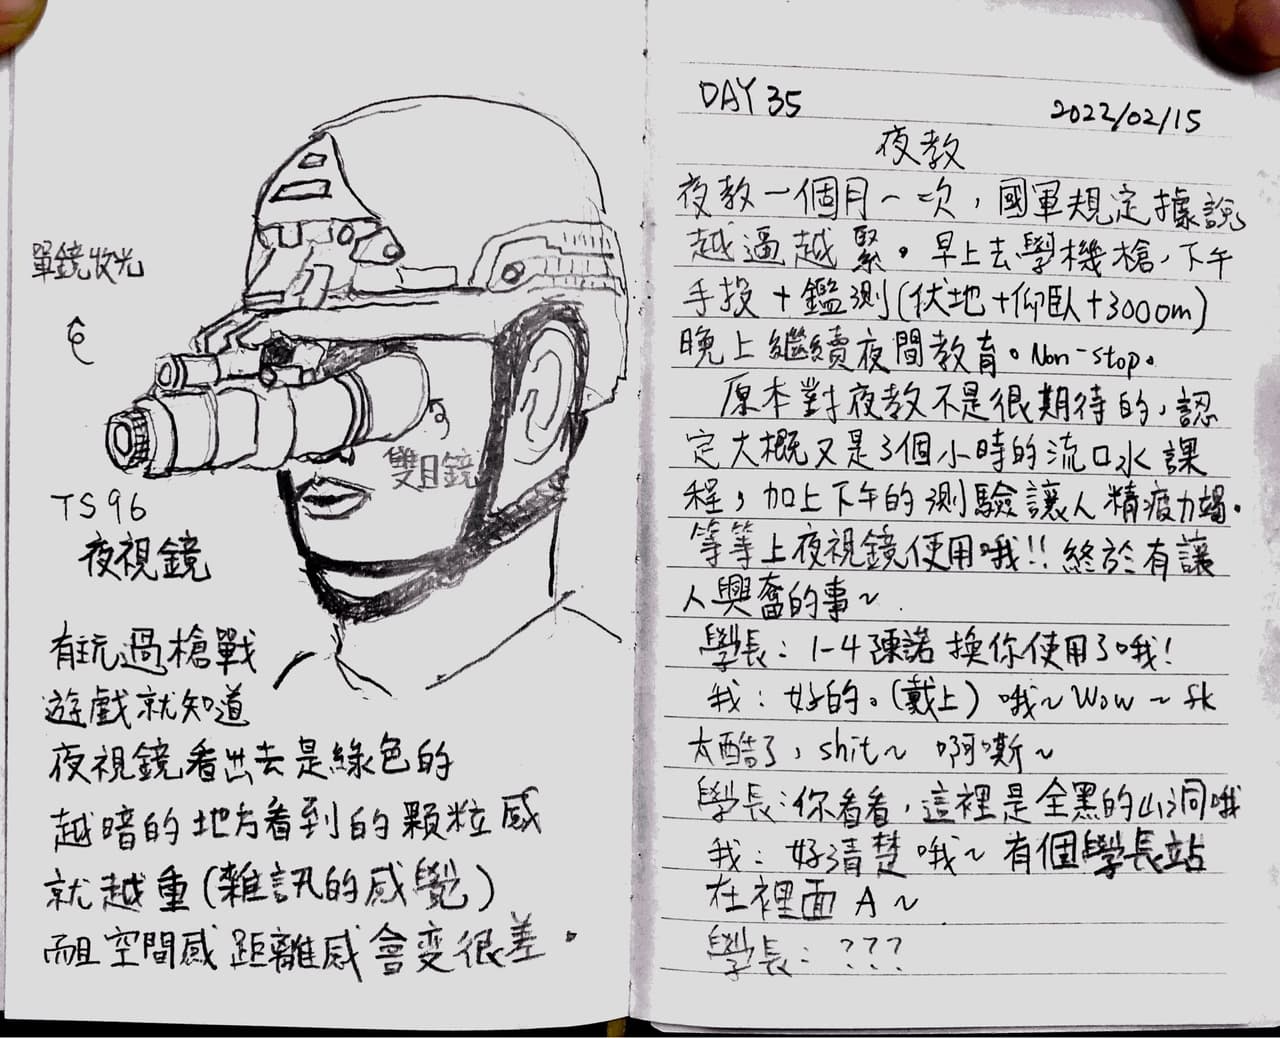 單鏡收光
雙目鏡
TS96
夜視鏡
有玩過槍戰
遊戲就知道
夜視鏡看出去是綠色的
越暗的地方看到的顆粒感
就越重(雜訊的感覺)
而且空間感距離感會变很差。
DAY 35 2022/02/15
夜教
夜教一個月一次，國軍規定據說
越逼越緊。早上去學機槍，下午
手投+鑑測(伏地+仰臥+3000m)
晚上繼續夜間教育。Non-stop。
原本對夜教不是很期待的，認
定大概又是3個小時的流口水課
程，加上下午的測驗讓人精疲力竭。
等等上夜視鏡使用哦!! 終於有讓
人興奮的事~
學長：1-4陳諾換你使用了哦!
我：好的。(戴上) 哦~Wow~fk
太酷了，shit~ 啊嘶~
學長：你看看，這裡是全黑的山洞哦
我：好清楚哦~有個學長站
在裡面 A~
學長：???